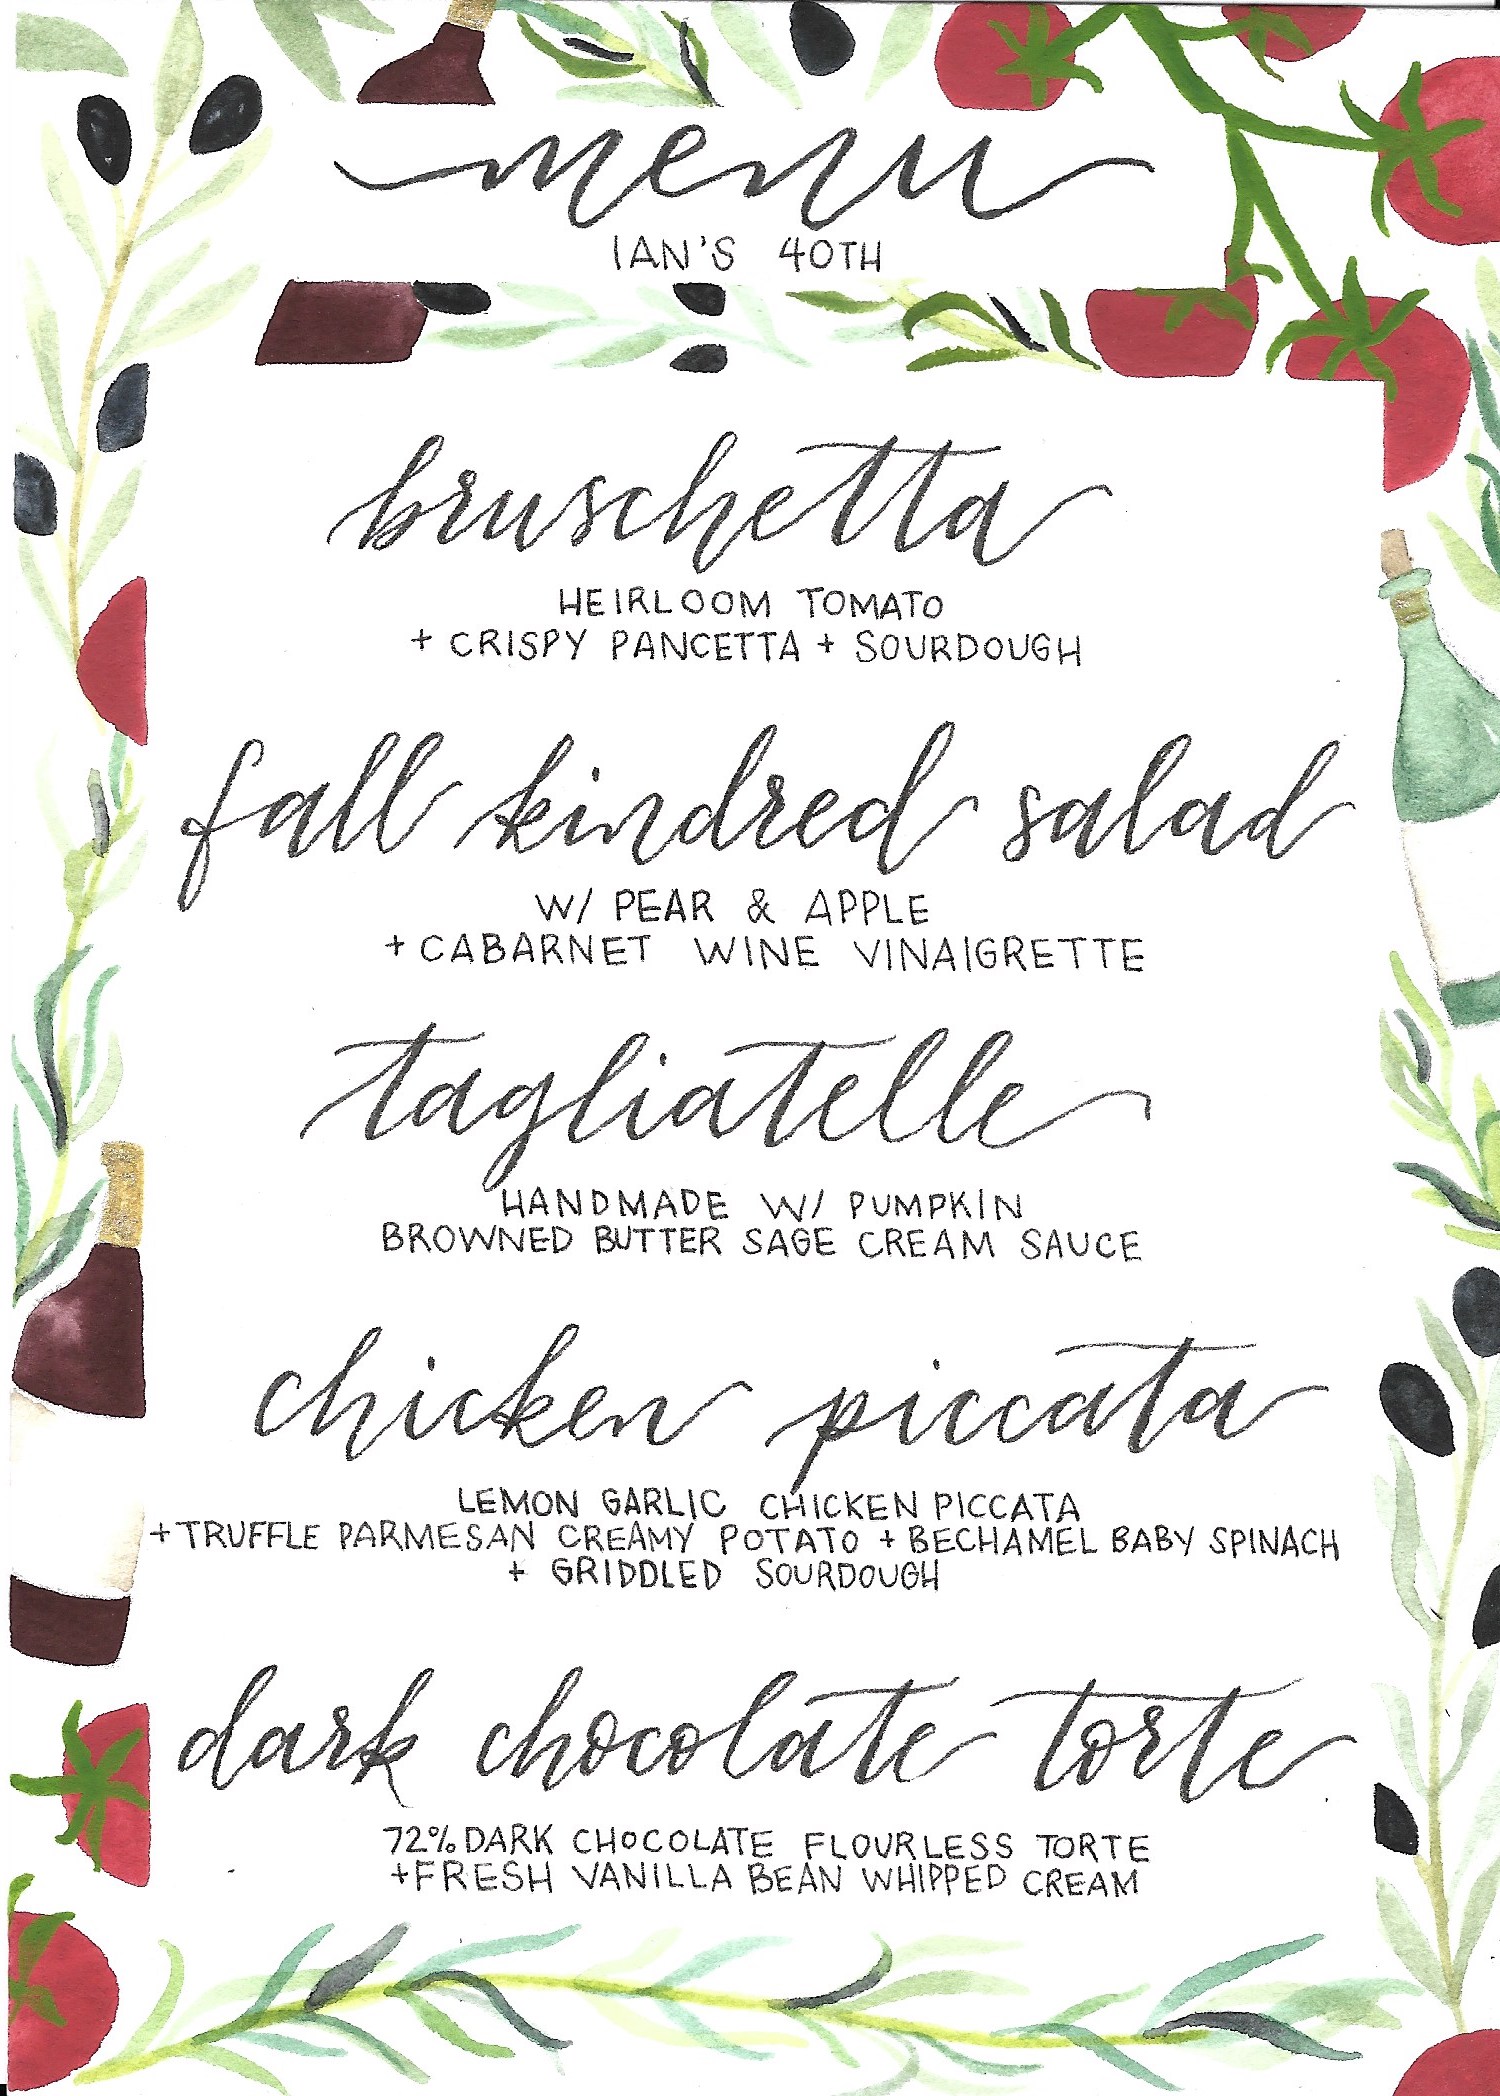 menu
IAN'S 40TH
bruschetta
HEIRLOOM TOMATO
+ CRISPY PANCETTA + SOURDOUGH
fall kindred salad
W/ PEAR & APPLE
+ CABARNET WINE VINAIGRETTE
tagliatelle
HANDMADE W/ PUMPKIN
BROWNED BUTTER SAGE CREAM SAUCE
chicken piccata
LEMON GARLIC CHICKEN PICCATA
+ TRUFFLE PARMESAN CREAMY POTATO + BECHAMEL BABY SPINACH
+ GRIDDLED SOURDOUGH
dark chocolate torte
72% DARK CHOCOLATE FLOURLESS TORTE
+ FRESH VANILLA BEAN WHIPPED CREAM